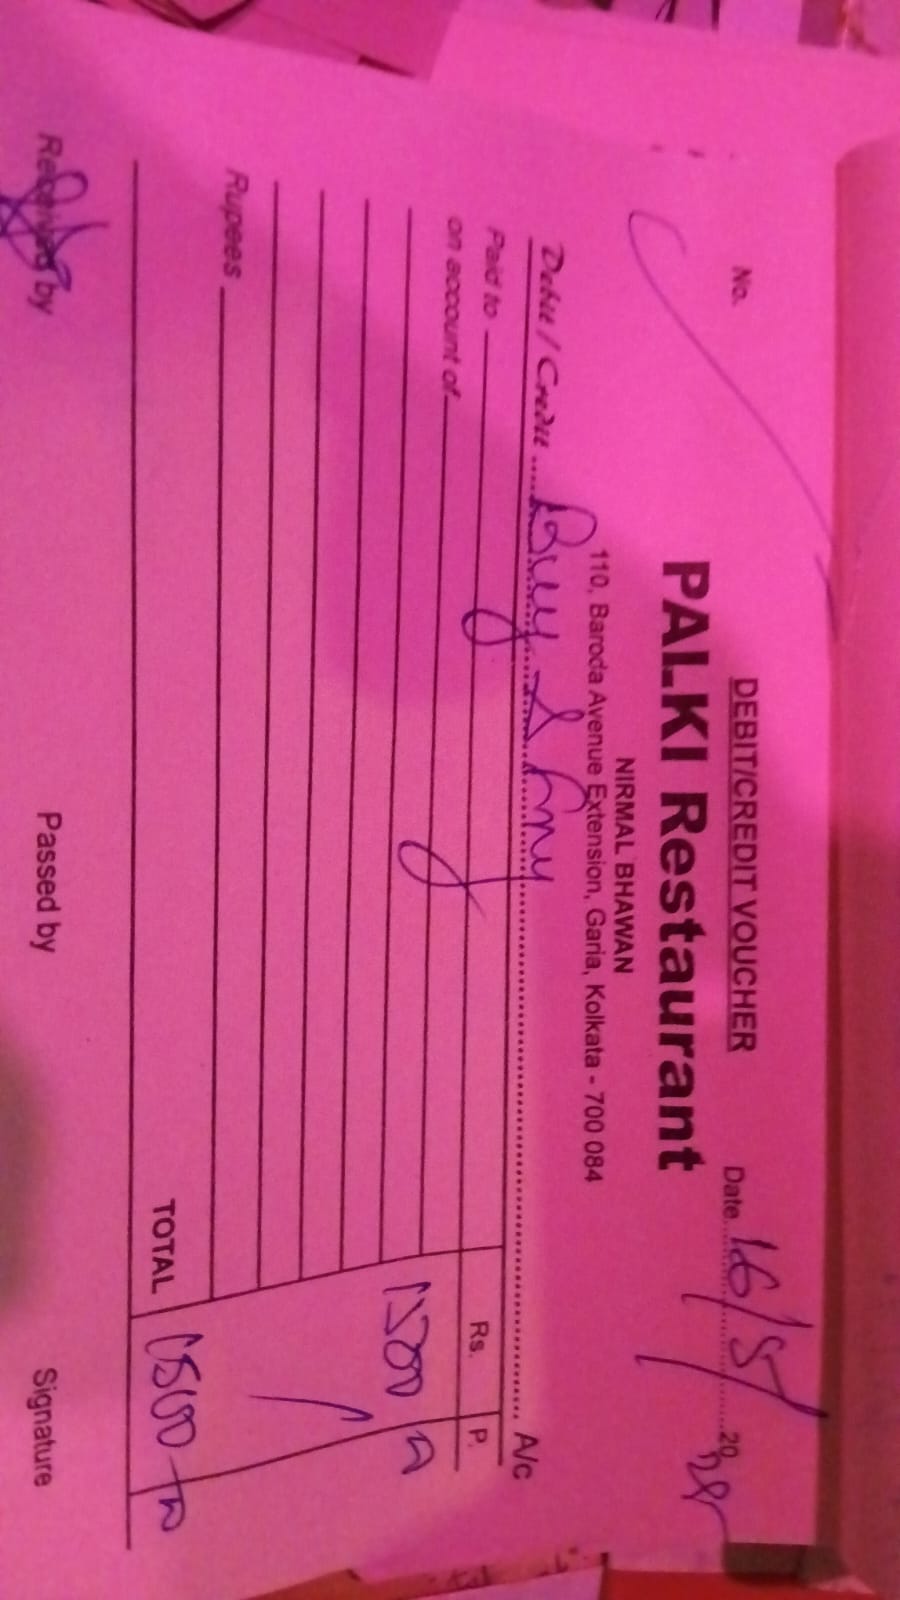 DEBIT/CREDIT VOUCHER
No. Date 16/5/ 20
PALKI Restaurant
NIRMAL BHAWAN
110, Baroda Avenue Extension, Garia, Kolkata - 700 084
Debit / Credit A/c
Paid to Rs. P.
on account of
Rupees
TOTAL
Received by Passed by Signature